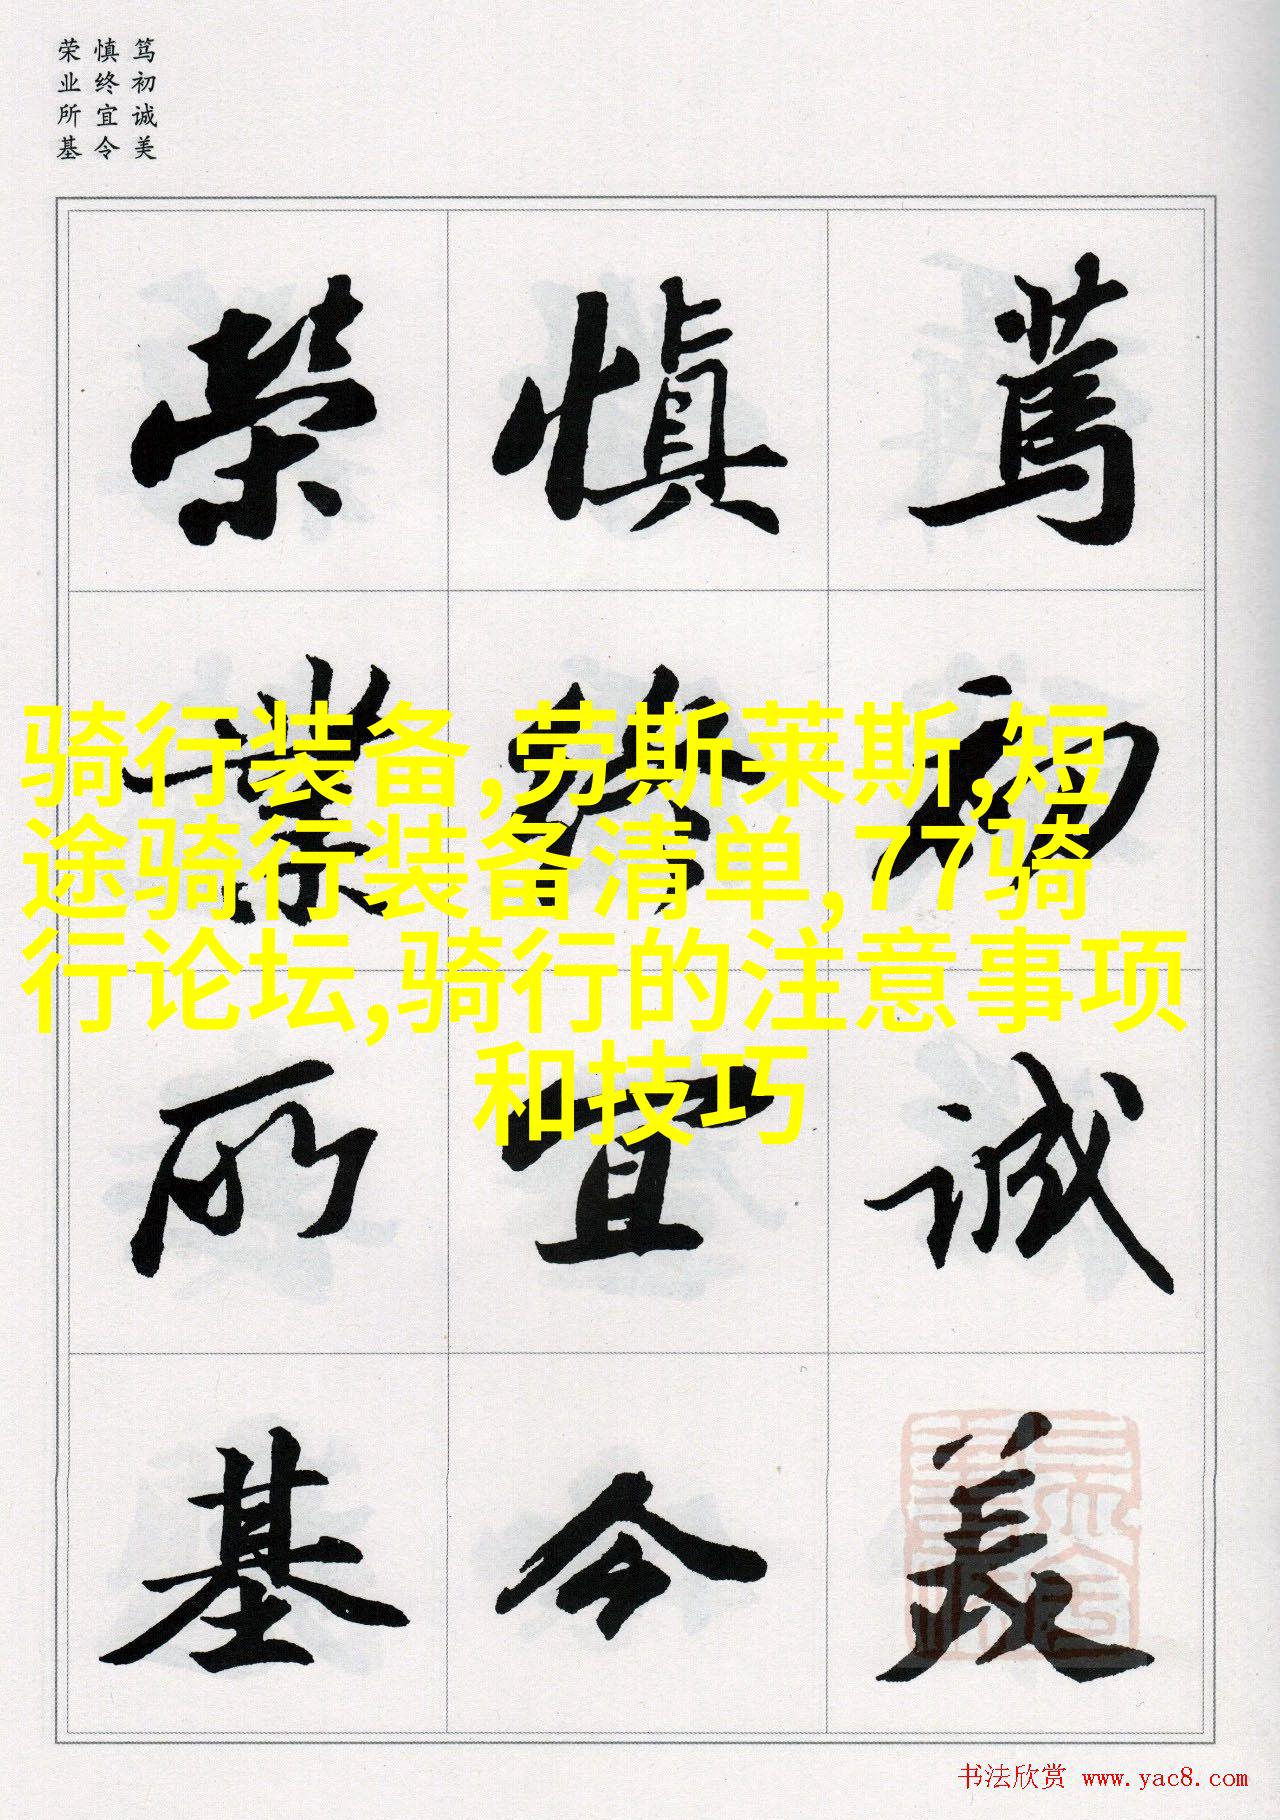 笃初诚美
慎终宜令
荣业所基
篤初诚美
慎终宜令
榮業所基
骑行装备,劳斯莱斯,短
途骑行装备清单,77骑
行论坛,骑行的注意事项
和技巧
书法欣赏 www.yac8.com